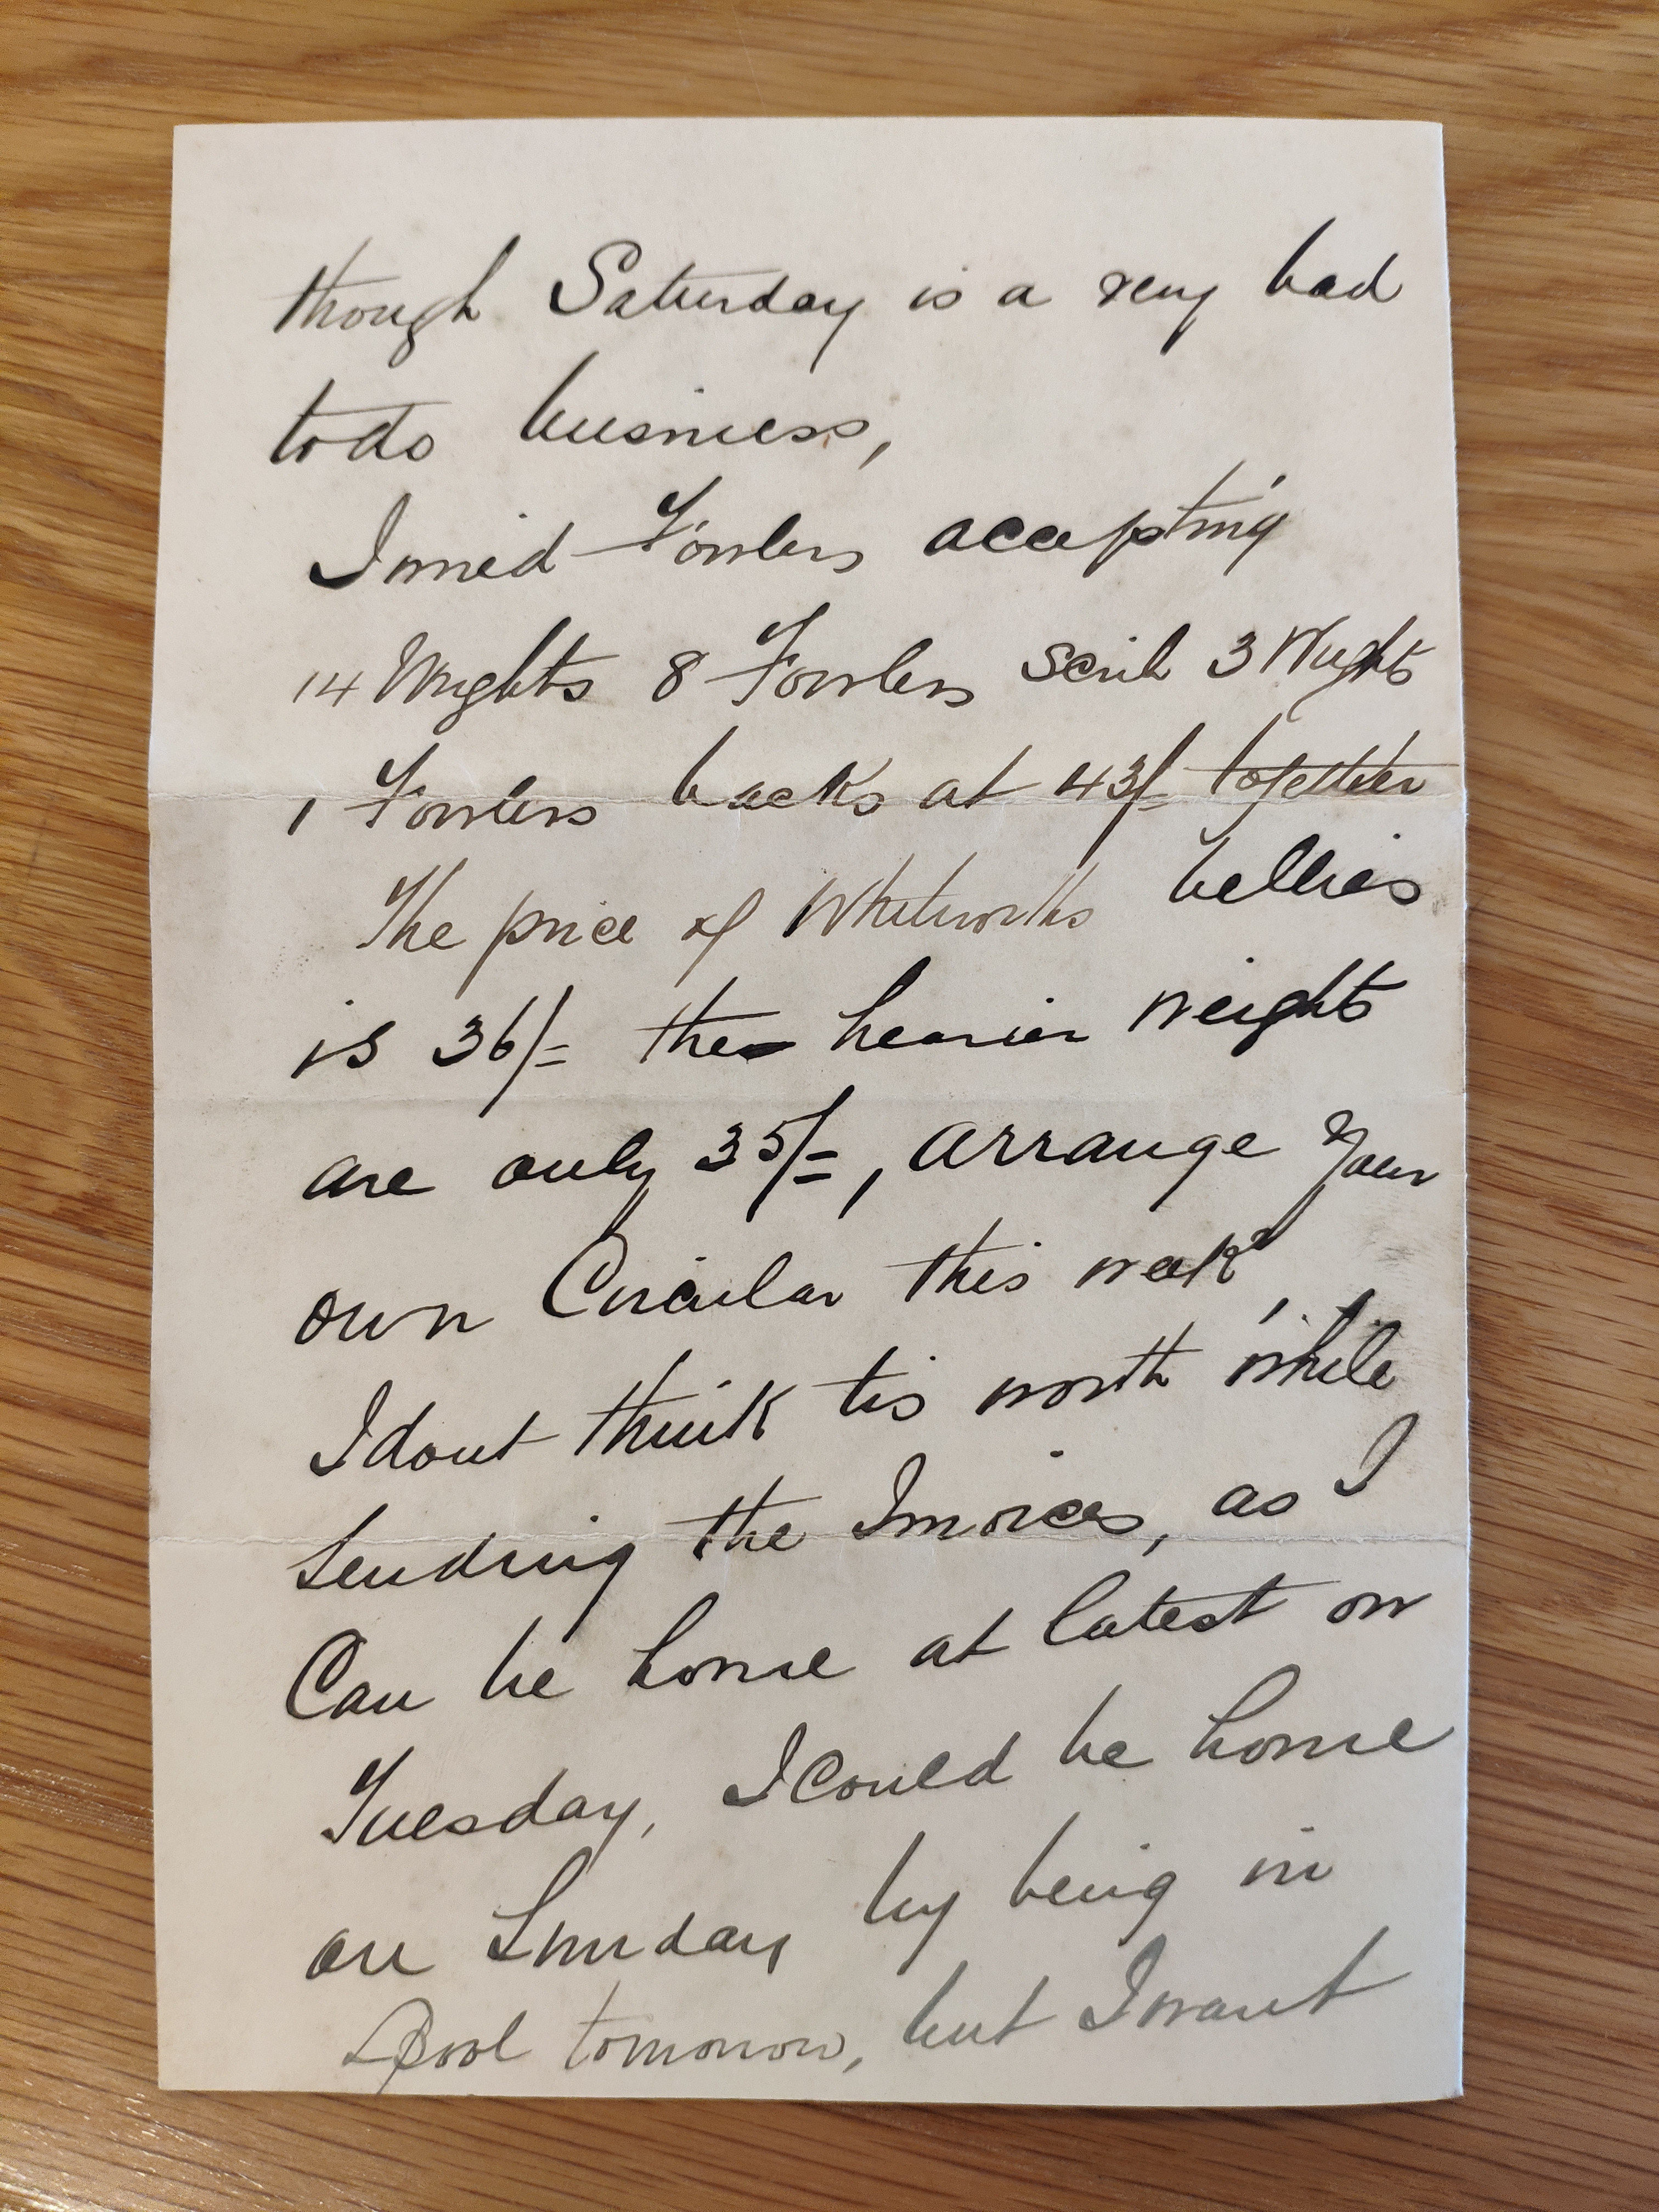 though Saturday is a very bad
to do business,
I wired Fowlers accepting
14 Wrights 8 Fowlers 3 Wrights
1 Fowlers backs at 43/- together
The price of Whitworths bellies
is 36/- the heavier weights
are only 35/-, arrange your
own Circular this week,
I dont think tis worth while
sending the Invoices, as I
Can be home at latest on
Tuesday, I Could be home
on Sunday by being in
L'pool tomorrow, but I want